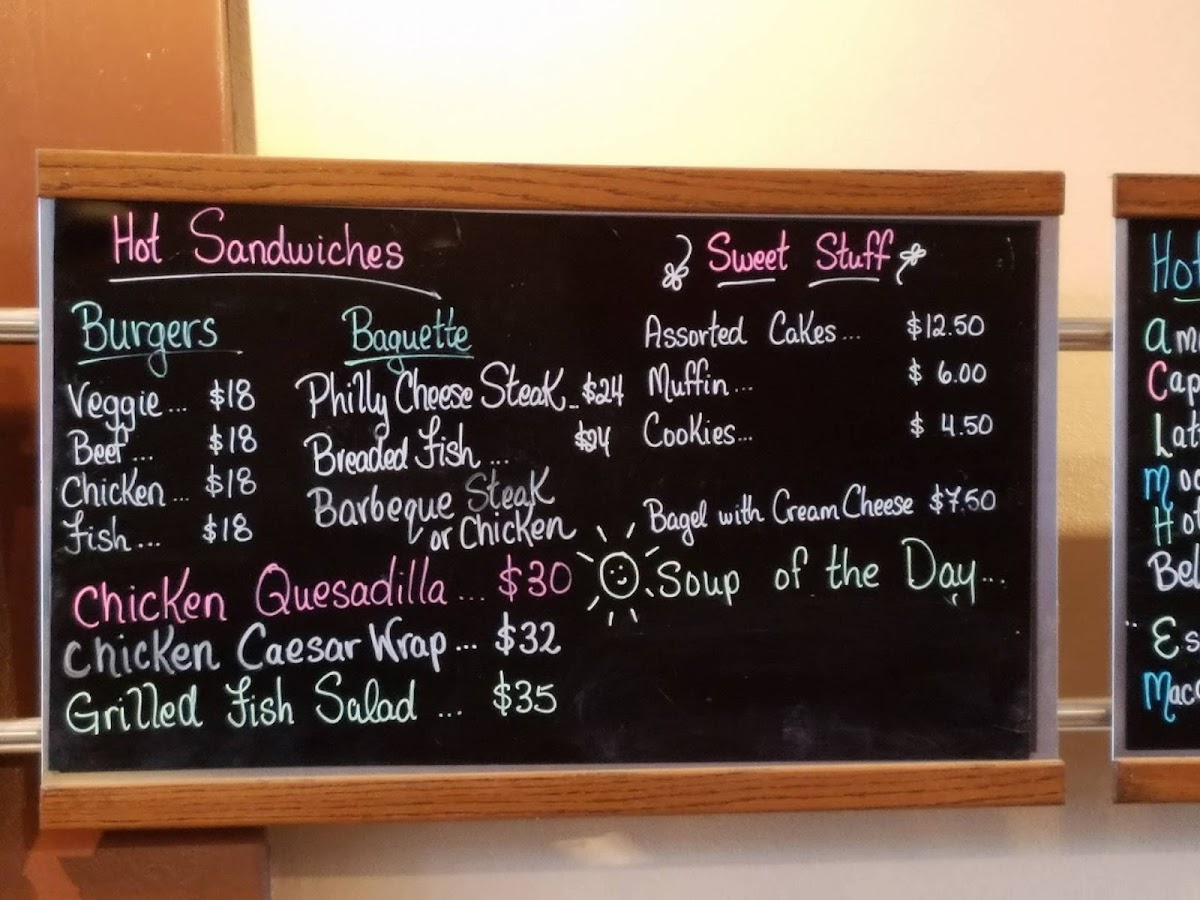 Hot Sandwiches
Burgers
Veggie... $18
Beef... $18
Chicken... $18
Fish... $18
Baguette
Philly Cheese Steak.. $24
Breaded Fish ... $24
Barbeque Steak
or Chicken
Chicken Quesadilla... $30
Chicken Caesar Wrap... $32
Grilled Fish Salad ... $35
Sweet Stuff
Assorted Cakes... $12.50
Muffin... $ 6.00
Cookies... $ 4.50
Bagel with Cream Cheese $7.50
Soup of the Day...